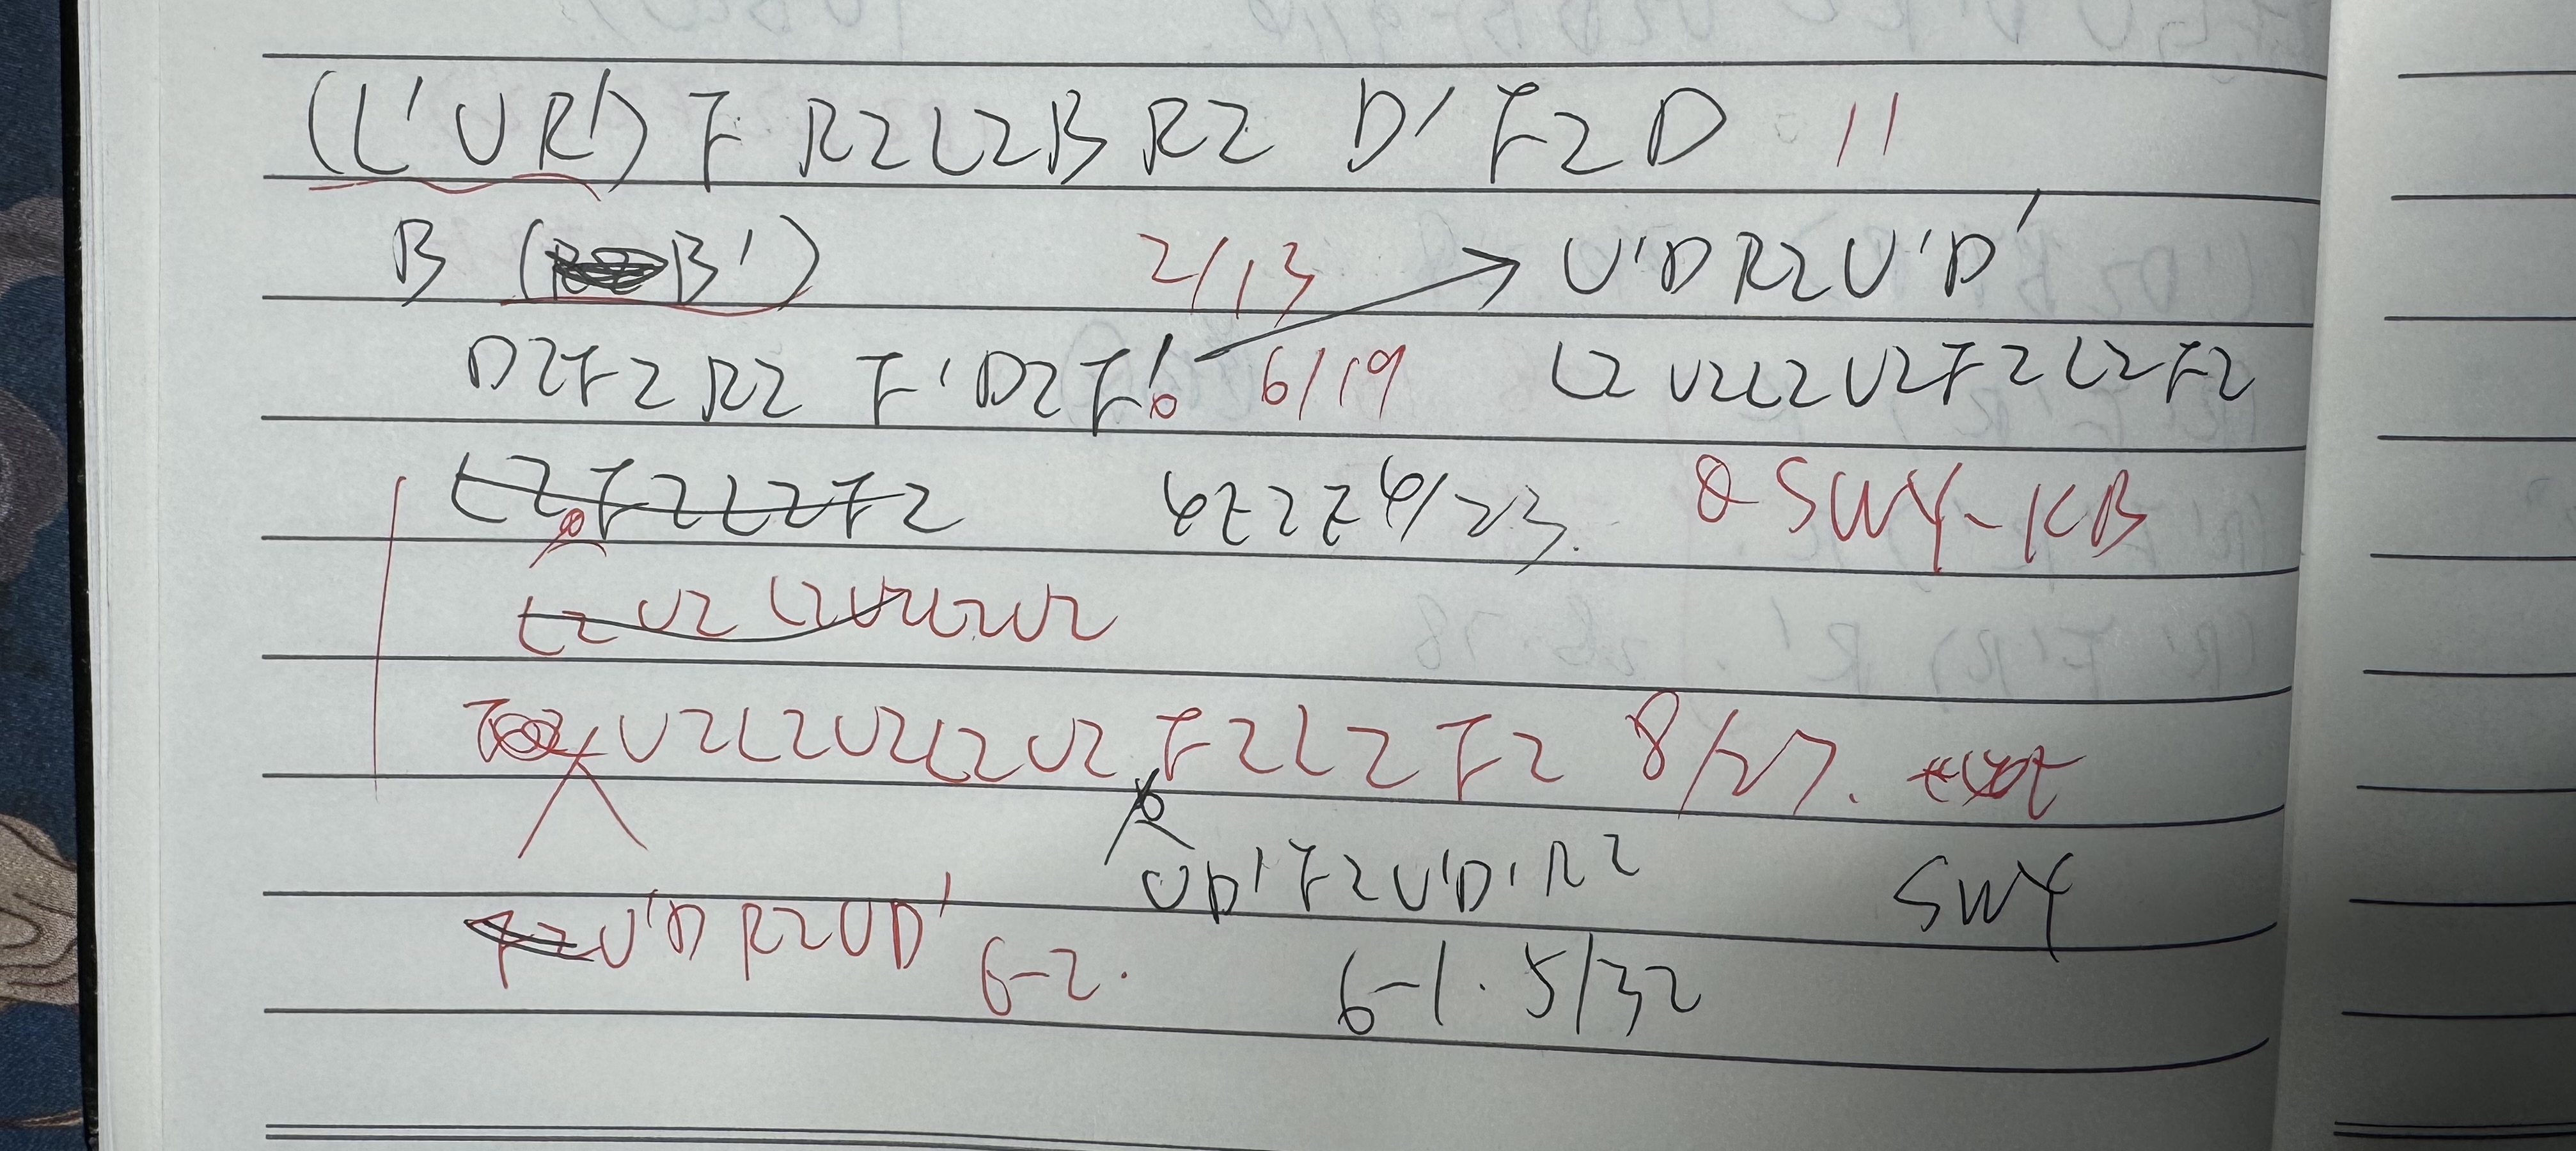 (L'UR') F R2L2B R2 D' F2 D 11
B (B') 2/13 → U'D R2U'D'
D2F2 R2 F'D2F' 6/19 L2 U2L2 U2F2 L2F2
L2F2L2F2 4e2e4/23. SWY-KB
L2 U2 L2U2L2U2
U2L2U2L2U2 F2L2 F2 8/27.
UD'F2U'D'R2 SWY
U'D R2UD' 6-2. 6-1. 5/32